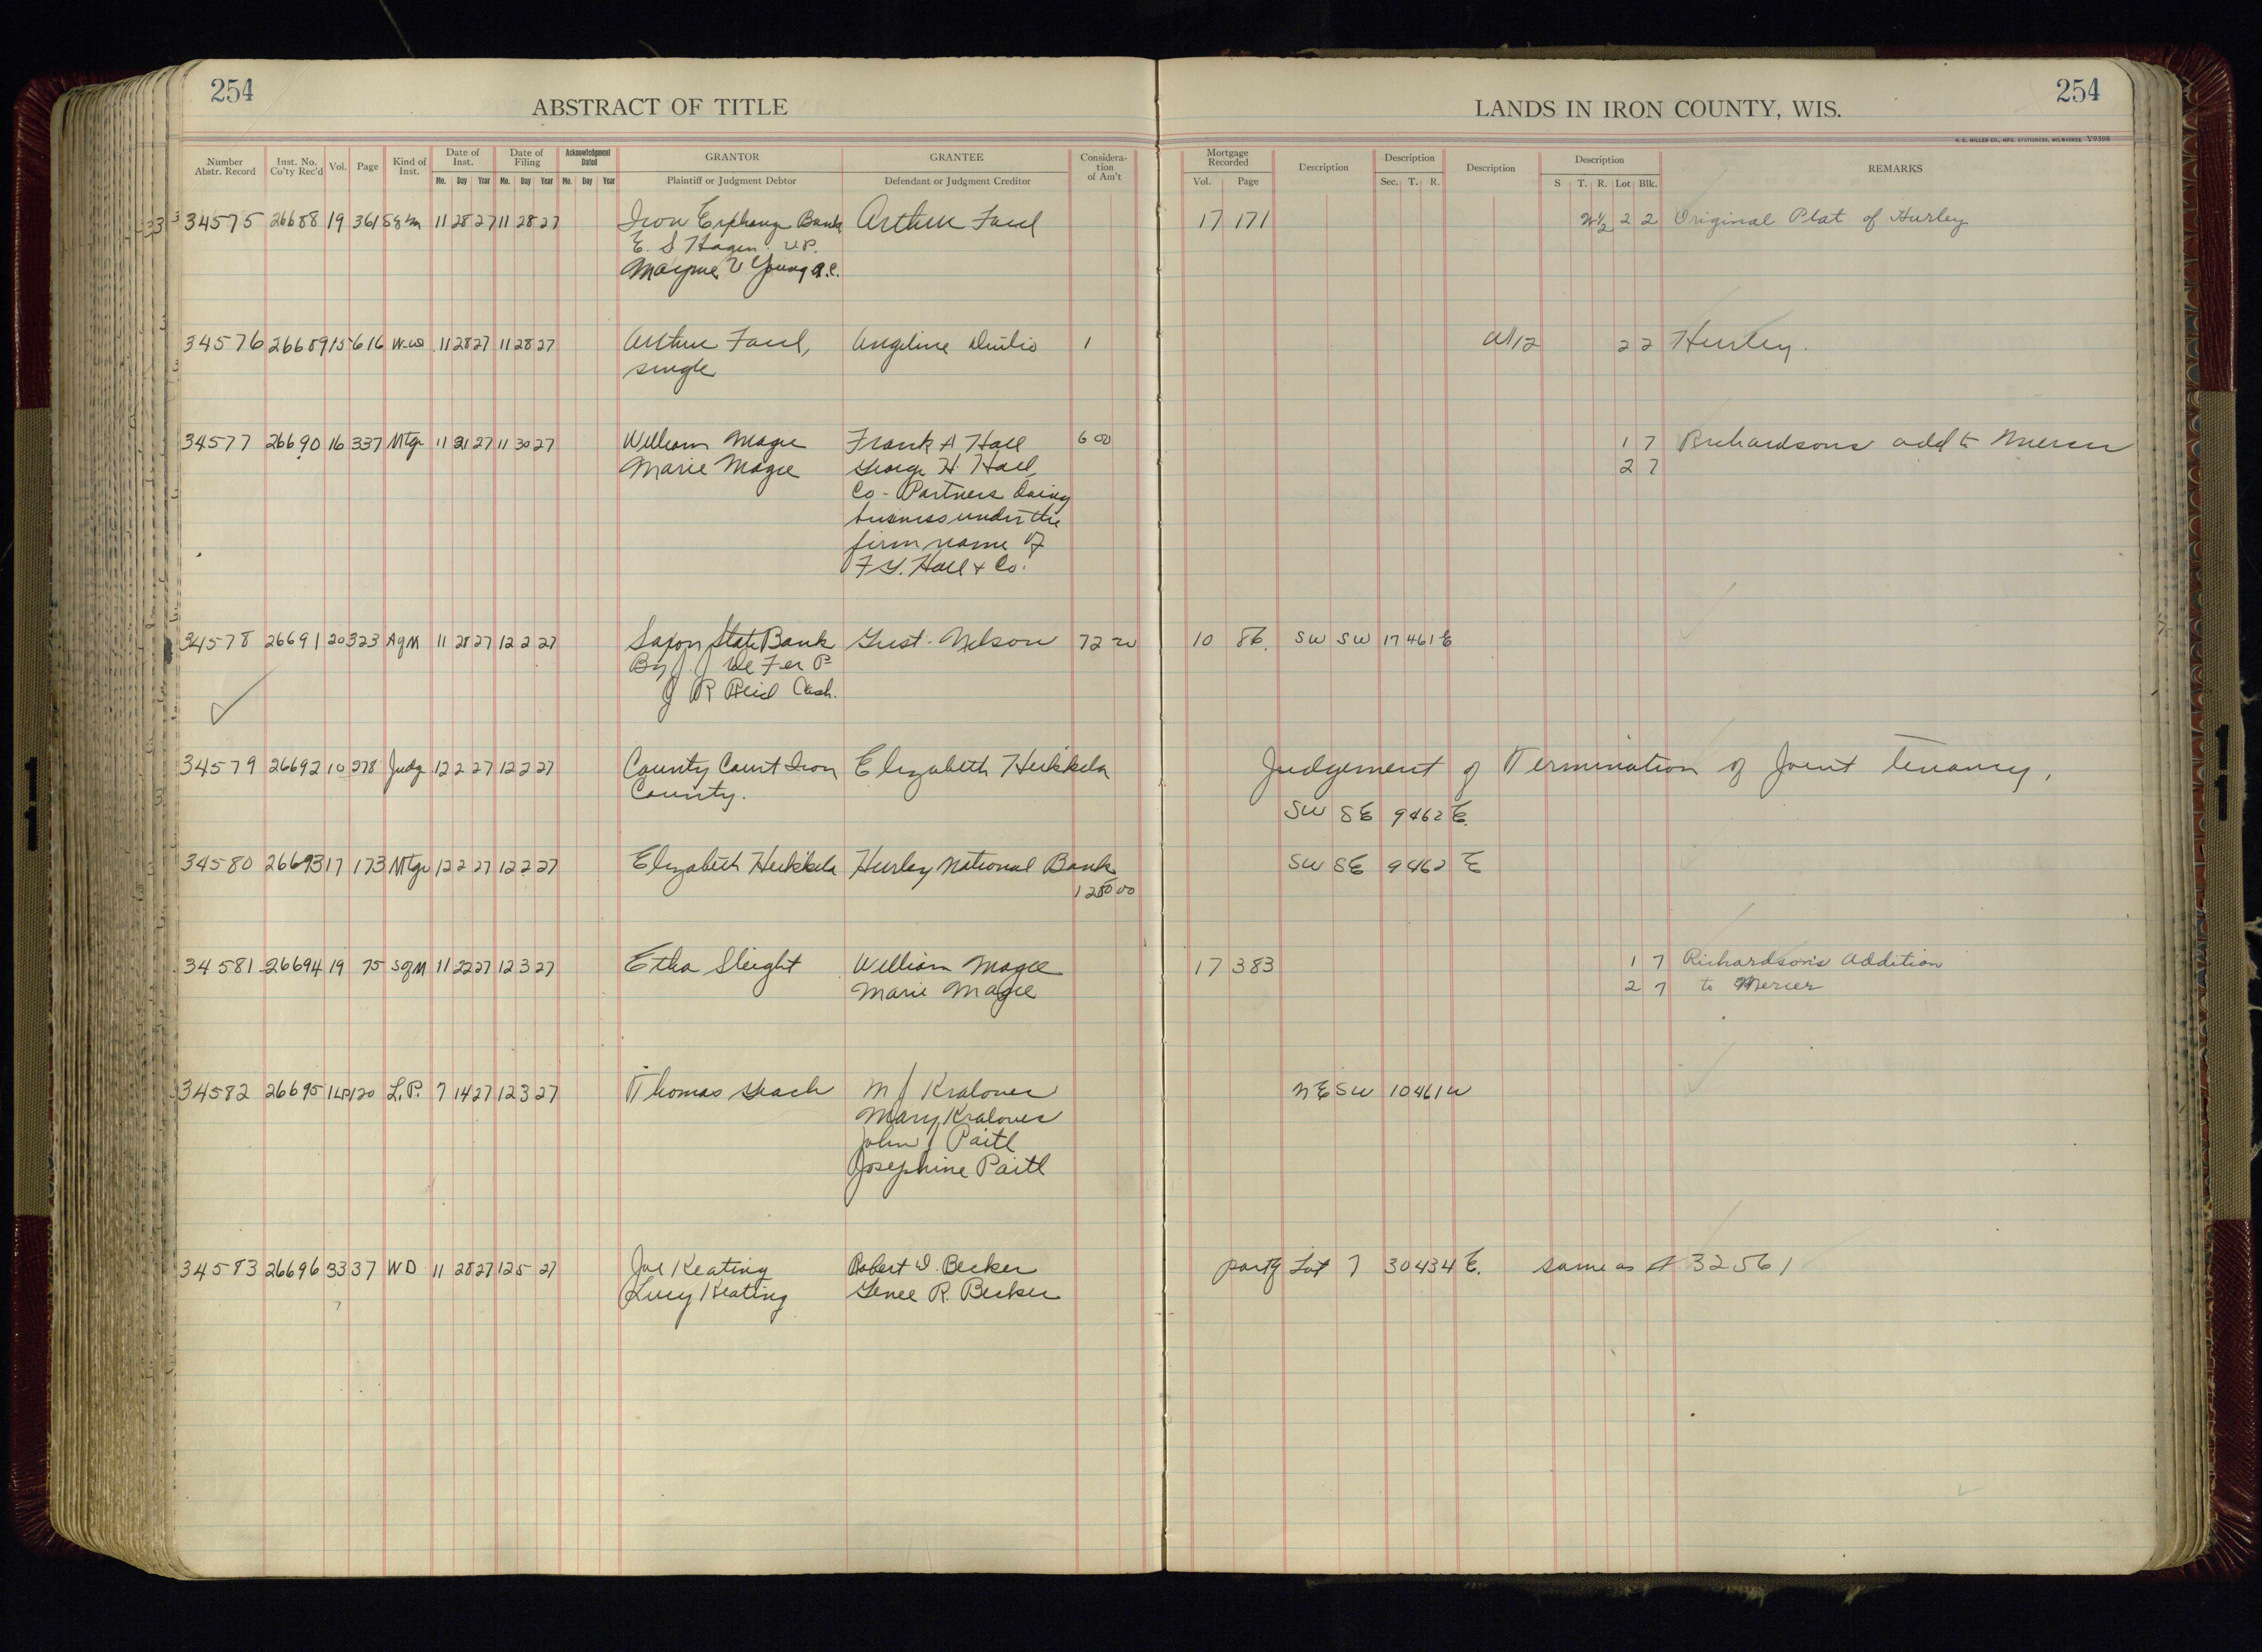 254
ABSTRACT OF TITLE
LANDS IN IRON COUNTY, WIS.
254
H. C. MILLER CO., MFG. STATIONERS, MILWAUKEE Y9398
Number Abstr. Record Inst. No. Co'ty Rec'd Vol. Page Kind of Inst. Date of Inst. Date of Filing Acknowledgment Dated GRANTOR GRANTEE Considera-tion of Am't Mortgage Recorded Description Description Description Description REMARKS
Mo. Day Year Mo. Day Year Mo. Day Year Plaintiff or Judgment Debtor Defendant or Judgment Creditor Vol. Page Sec. T. R. S T. R. Lot Blk.
34575 26688 19 361 11 28 27 11 28 27 Iron Exchange Bank Arthur 17 171 W½ 2 2 Original Plat of Hurley
E. S Hagen V.P.
Mayme V Young a.c.
34576 26689 15 616 W-D 11 28 27 11 28 27 Arthur Angeline 1 W1/2 2 2 Hurley.
single
34577 26690 16 337 Mtge 11 21 27 11 30 27 William Magee Frank A Hall 600 1 7 Richardsons add to Mercer
Marie Magee George H. Hall 2 7
Co-Partners doing
business under the
firm name of
F. Hall & Co.
34578 26691 20 323 AgM 11 28 27 12 2 27 Saxon State Bank Gust. Nelson 72 10 86. SW SW 17 46 1 E
By J. J De Fer P
J R Reid Cash.
34579 26692 10 278 Judg 12 2 27 12 2 27 County Court Iron Elizabeth Heikkela Judgement of Termination of Joint tenancy,
County. SW SE 9 46 2 E.
34580 26693 17 173 Mtge 12 2 27 12 2 27 Elizabeth Heikkela Hurley National Bank SW SE 9 46 2 E
00
34581 26694 19 75 SgM 11 22 27 12 3 27 Etha Sleight William Magee 17 383 1 7 Richardson's Addition
Marie Magee 2 7 to Mercer
34582 26695 1LP 120 L.P. 7 14 27 12 3 27 Thomas M J Kralovec NE SW 10 46 1 W
Mary Kralovec
John J Paitl
Josephine Paitl
34583 26696 33 37 WD 11 28 27 12 5 27 Joe Keating Robert D. Becker part of Lot 7 30 43 4 E. same as A 32561
Lucy Keating Genee R. Becker